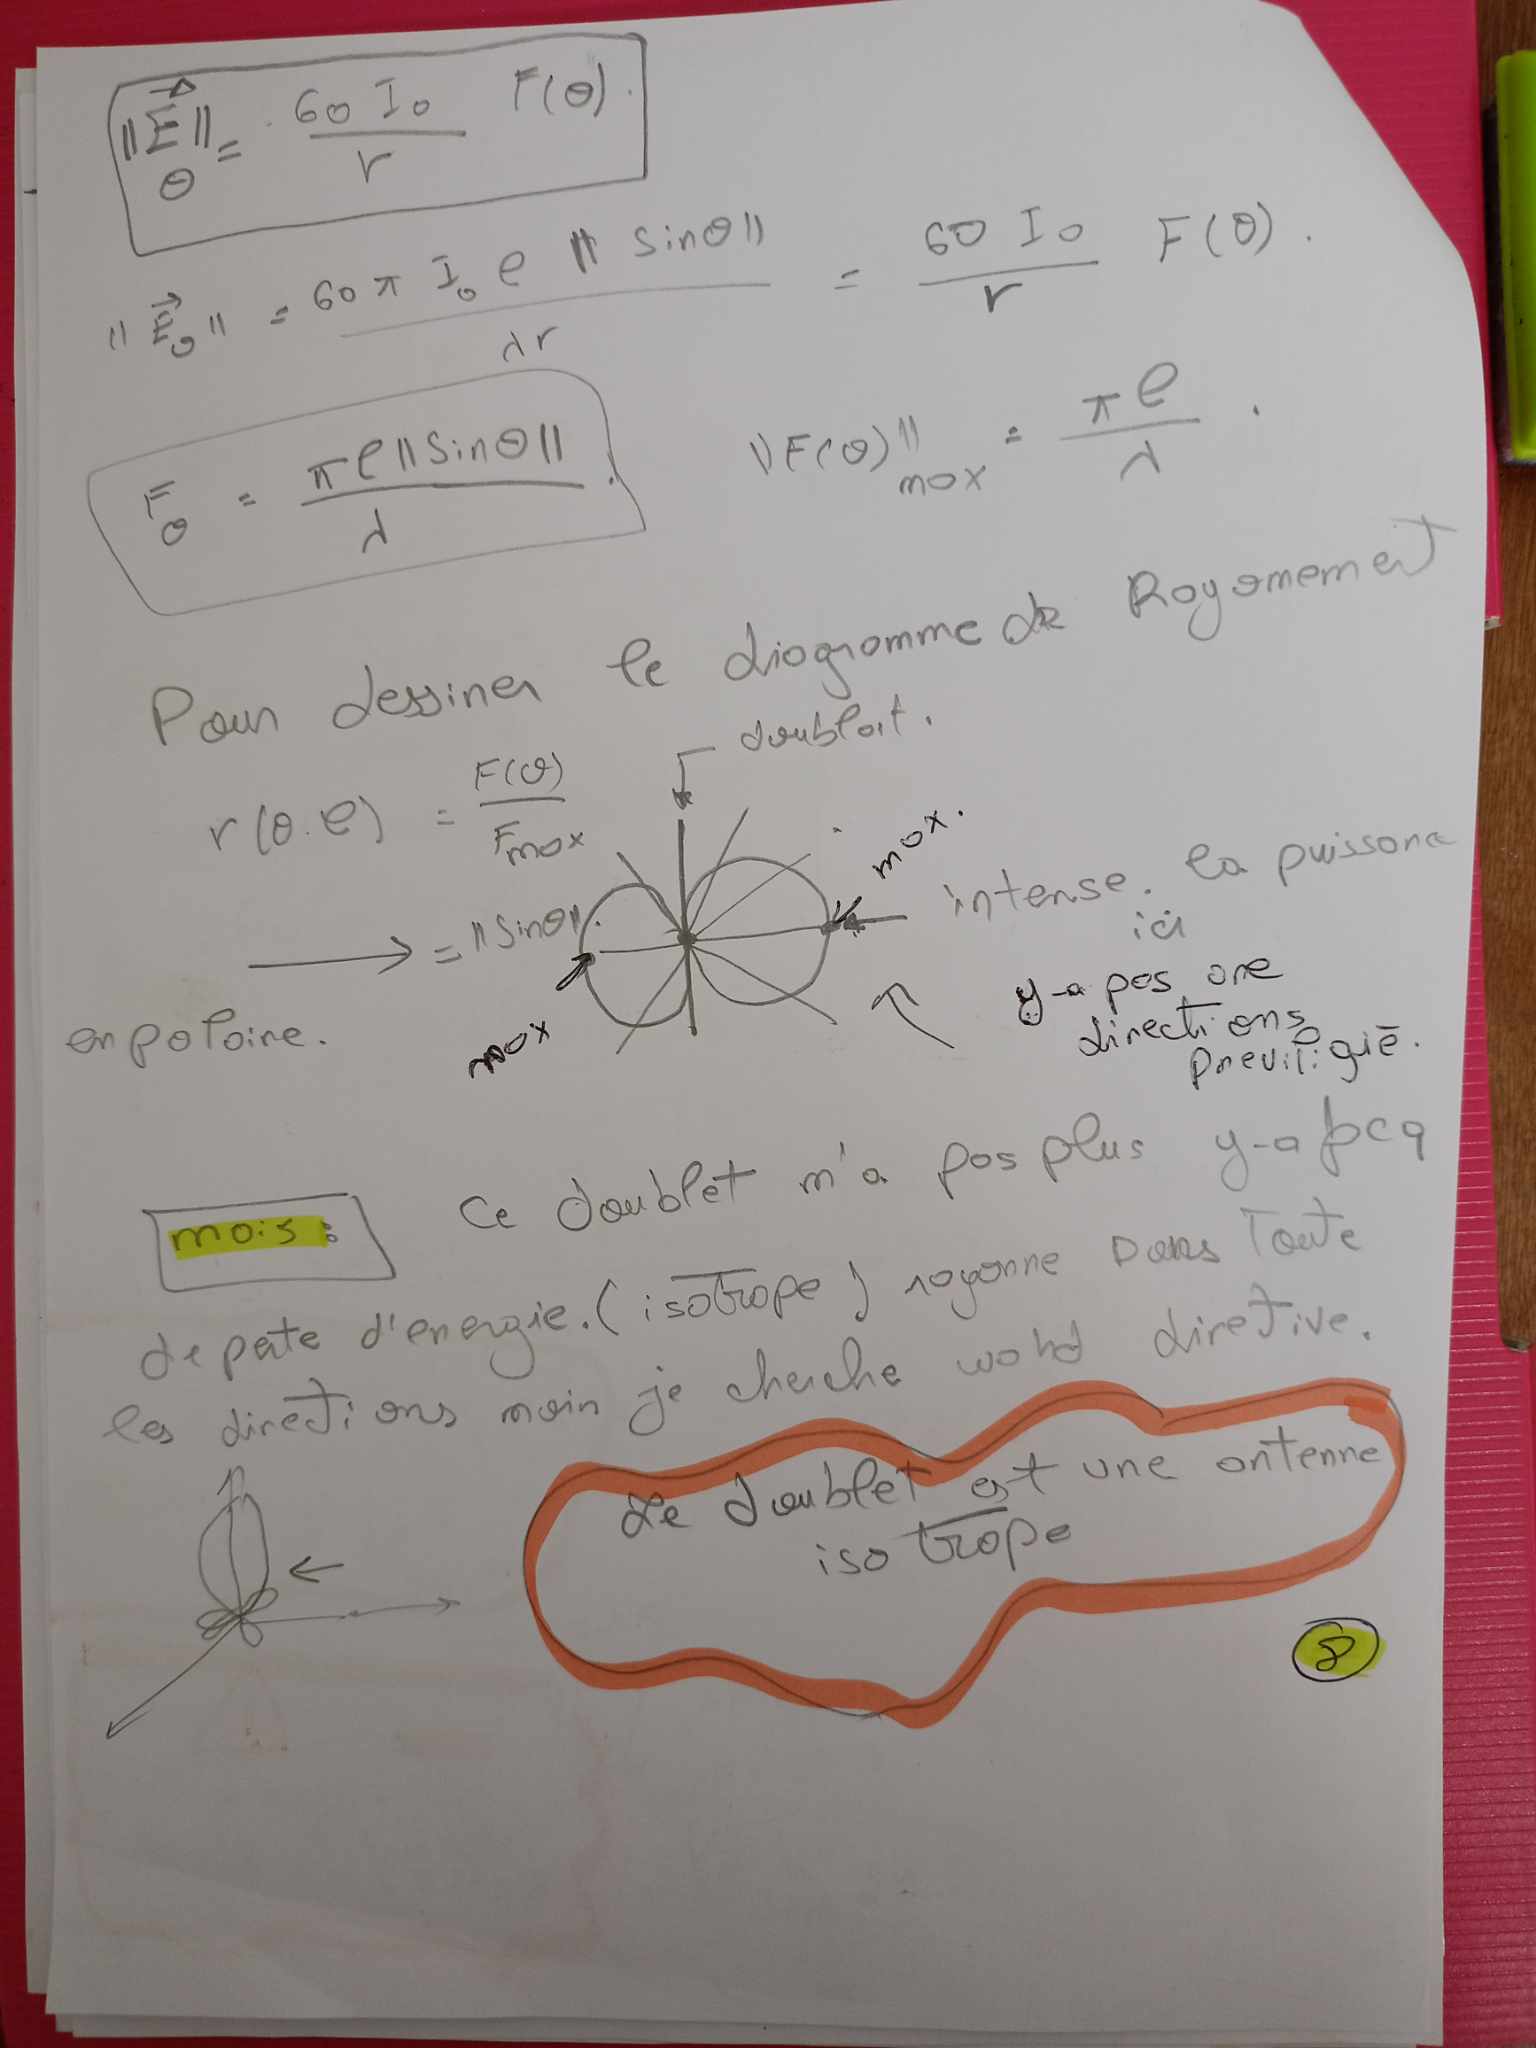 ||E⃗||θ = 60 I0 / r F(θ).
|| E⃗θ || = 60 π I0 l || sinθ || / λr = 60 I0 / r F(θ).
Fθ = π l || sinθ || / λ . || F(θ) ||max = π l / λ .
Pour dessiner le diagramme de Rayonement
doublait.
r(θ.φ) = F(θ) / Fmax
max.
intense. la puissance
ici
= || sinθ ||.
y-a pas une
directions
previligié.
en polaire.
max
mais : Ce doublet n'a pas plus y-a pcq
de perte d'energie. (isotrope) rayonne Dans Toute
les directions main je cherche directive.
Le doublet est une antenne
isotrope
8